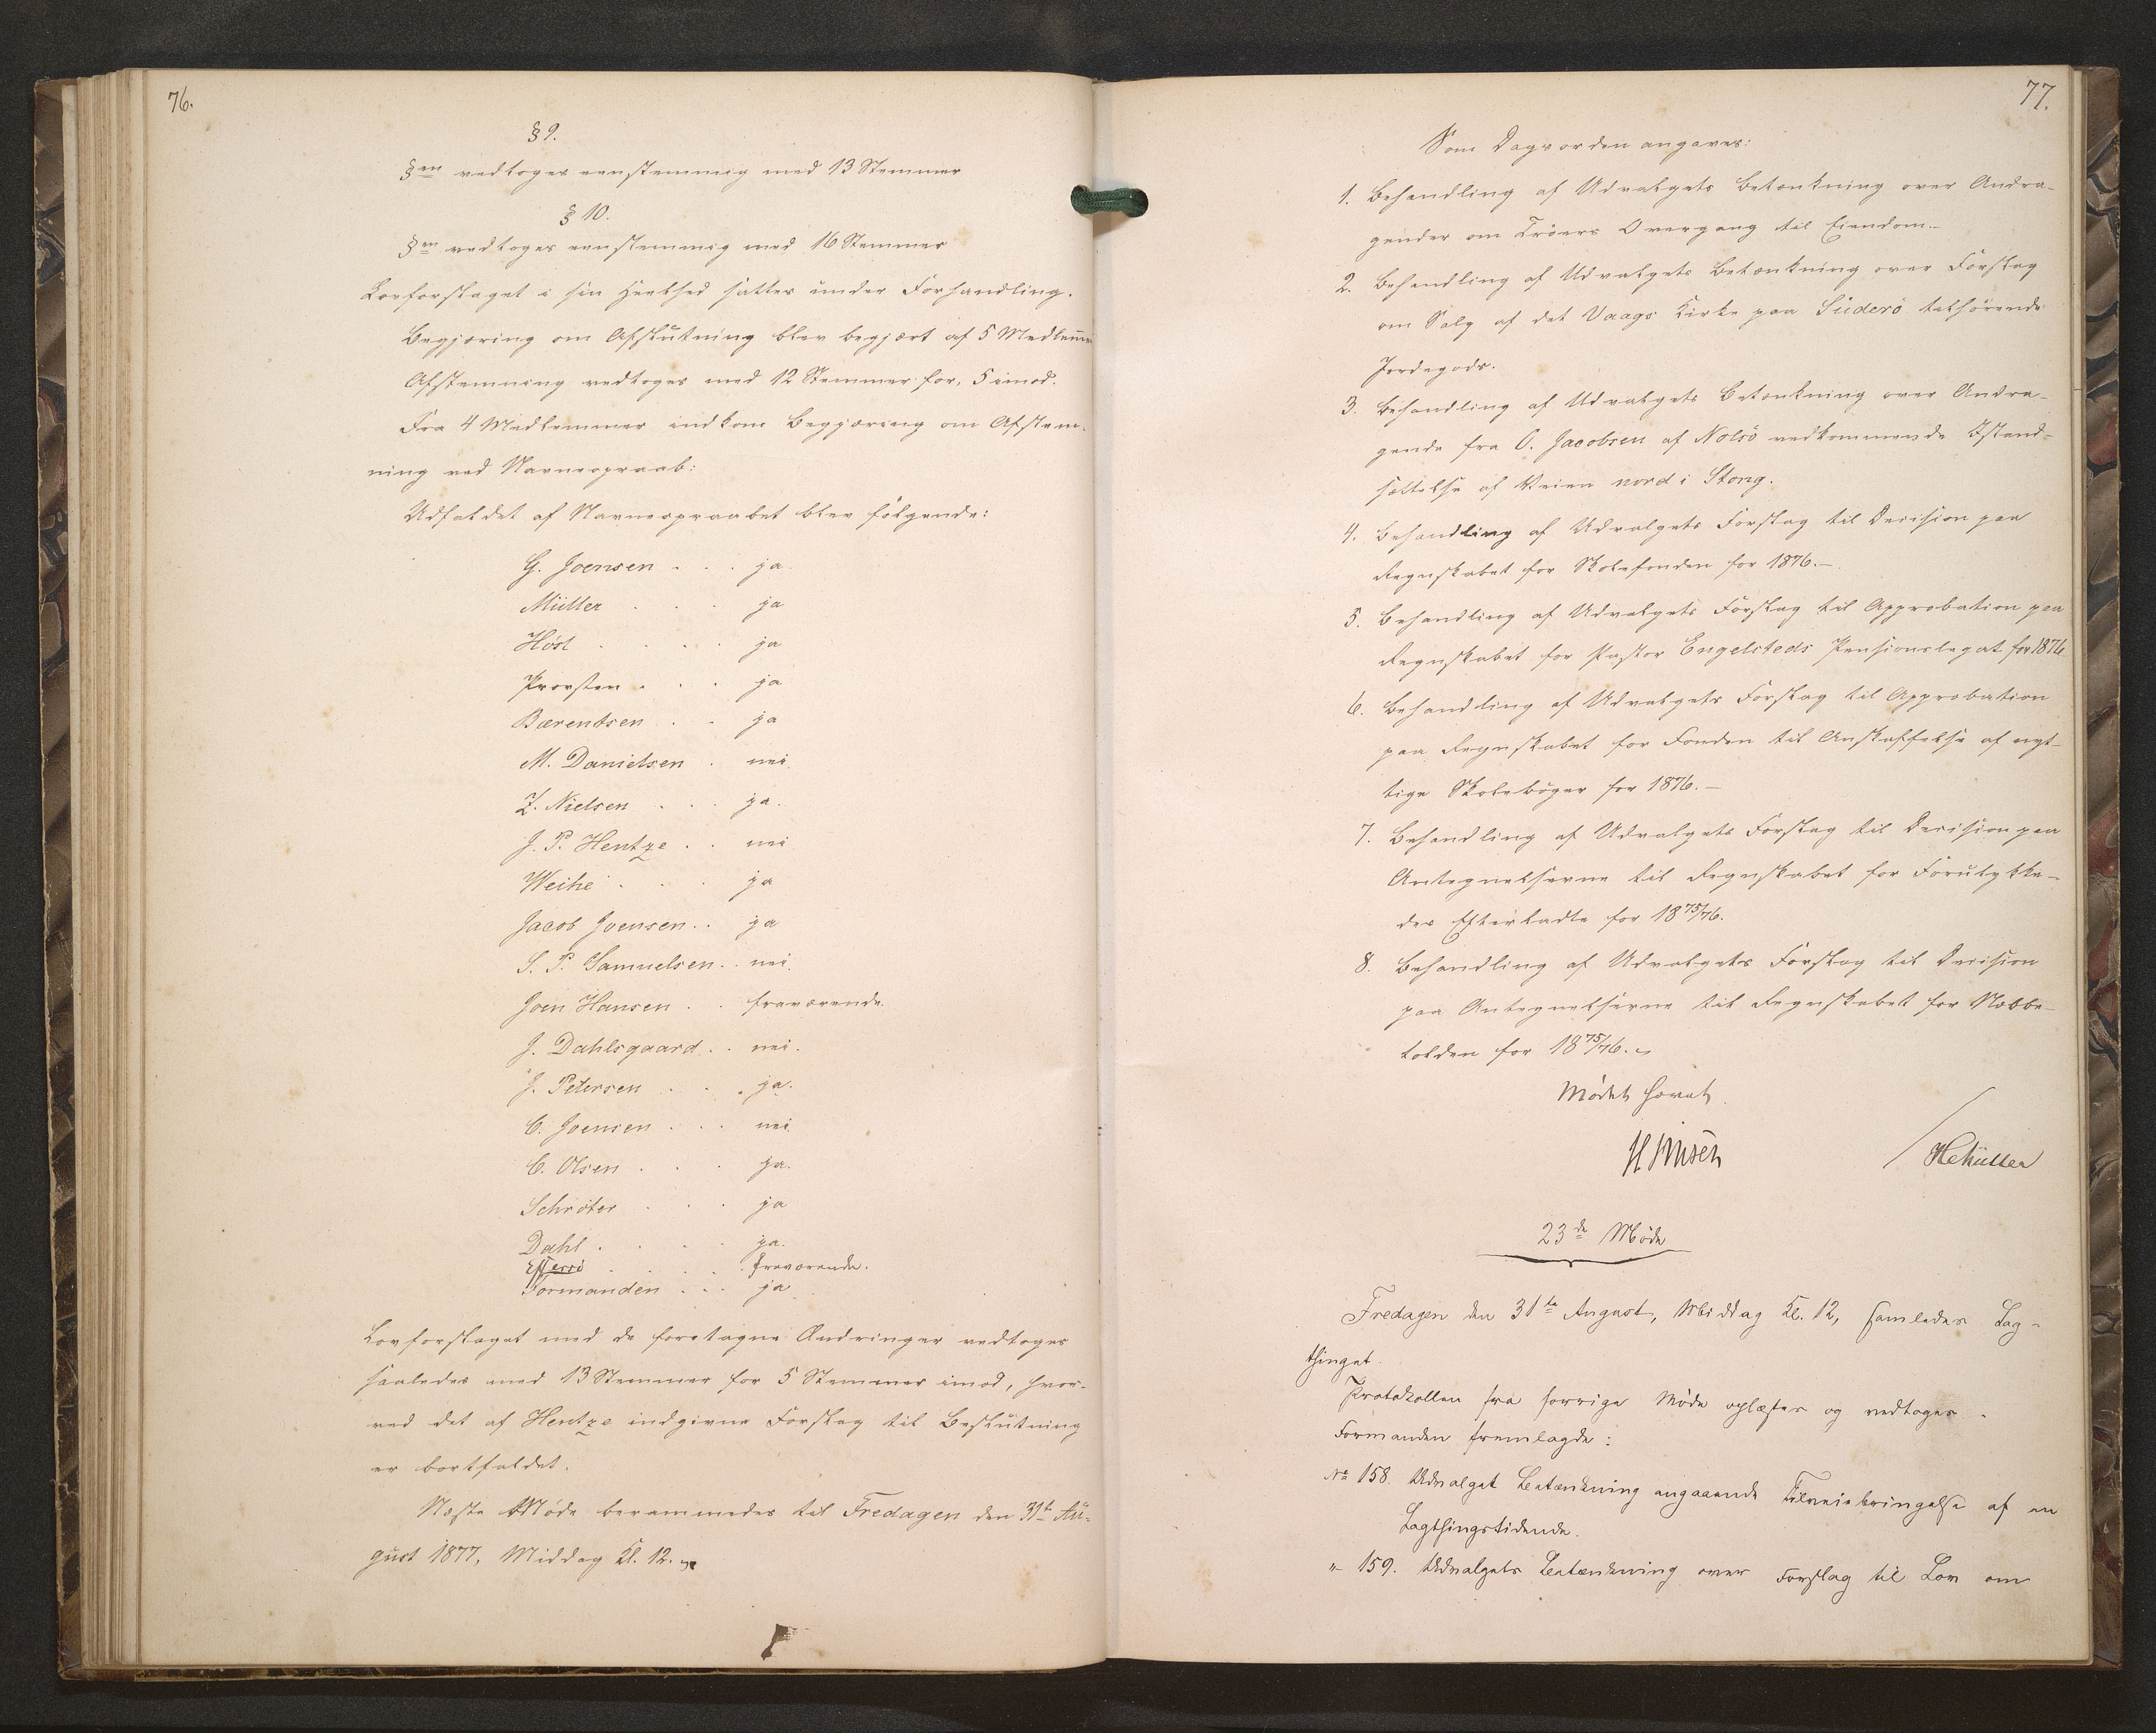 76.
§ 9.
§en vedtoges eenstemmig med 13 Stemmer
§ 10.
§en vedtoges eenstemmig med 16 Stemmer
Lovforslaget i sin Heelhed sattes under Forhandling.
Begjæring om Afslutning blev begjært af 5 Medlemmer
Afstemning vedtoges med 12 Stemmer for, 5 imod.
Fra 4 Medlemmer indkom Begjæring om Afstem-
ning ved Navneopraab:
Udfaldet af Navneopraabet blev følgende:
G. Joensen . . . ja
Müller . . . ja
Høst . . . . ja
Provsten . . . ja
Bærentsen . . ja
M. Danielsen . nei
Z. Nielsen . . . ja.
J. P. Hentze . . nei
Weihe . . . ja
Jacob Joensen . . ja
S. P. Samuelsen . . nei
Joen Hansen . . fraværende.
J. Dahlsgaard . . nei.
J. Petersen . . . ja.
C. Joensen . . . nei
C. Olsen . . . ja.
Schrøter . . . ja
Dahl . . . . ja.
Effersö . . . . fraværende.
Formanden . . . ja
Lovforslaget med de foretagne Ændringer vedtoges
saaledes med 13 Stemmer for 5 Stemmer imod, hvor-
ved det af Hentze indgivne Forslag til Beslutning
er bortfaldet.
Næste Møde berammedes til Fredagen den 31te Au-
gust 1877, Middag Kl. 12.
77.
Som Dagsorden angaves:
1. Behandling af Udvalgets Betænkning over Andra-
gender om Trøers Overgang til Eiendom.-
2. Behandling af Udvalgets Betænkning over Forslag
om Salg af det Vaags Kirke paa Suderø tilhørende
Jordegods.
3. Behandling af Udvalgets Betænkning over Andra-
gende fra O. Jacobsen af Nolsø vedkommende Istand-
sættelse af Veien nord i Stong.
4. Behandling af Udvalgets Forslag til Decision paa
Regnskabet for Skolefonden for 1876.-
5. Behandling af Udvalgets Forslag til Approbation paa
Regnskabet for Pastor Engelsteds Pensionslegat for 1876
6. Behandling af Udvalgets Forslag til Approbation
paa Regnskabet for Fonden til Anskaffelse af nyt-
tige Skolebøger for 1876.-
7. Behandling af Udvalgets Forslag til Decision paa
Antegnelserne til Regnskabet for Forulykke-
des Efterladte for 1875/76.
8. Behandling af Udvalgets Forslag til Decision
paa Antegnelserne til Regnskabet for Næbbe-
tolden for 1875/76.
Mødet hævet
HMüller
23de Møde
Fredagen den 31te August, Middag Kl. 12, samledes Lag-
thinget.
Protokollen fra forrige Møde oplæstes og vedtoges.
Formanden fremlagde:
No 158. Udvalget Betænkning angaaende Tilveiebringelse af en
Lagthingstidende.
"- 159. Udvalgets Betænkning over Forslag til Lov om